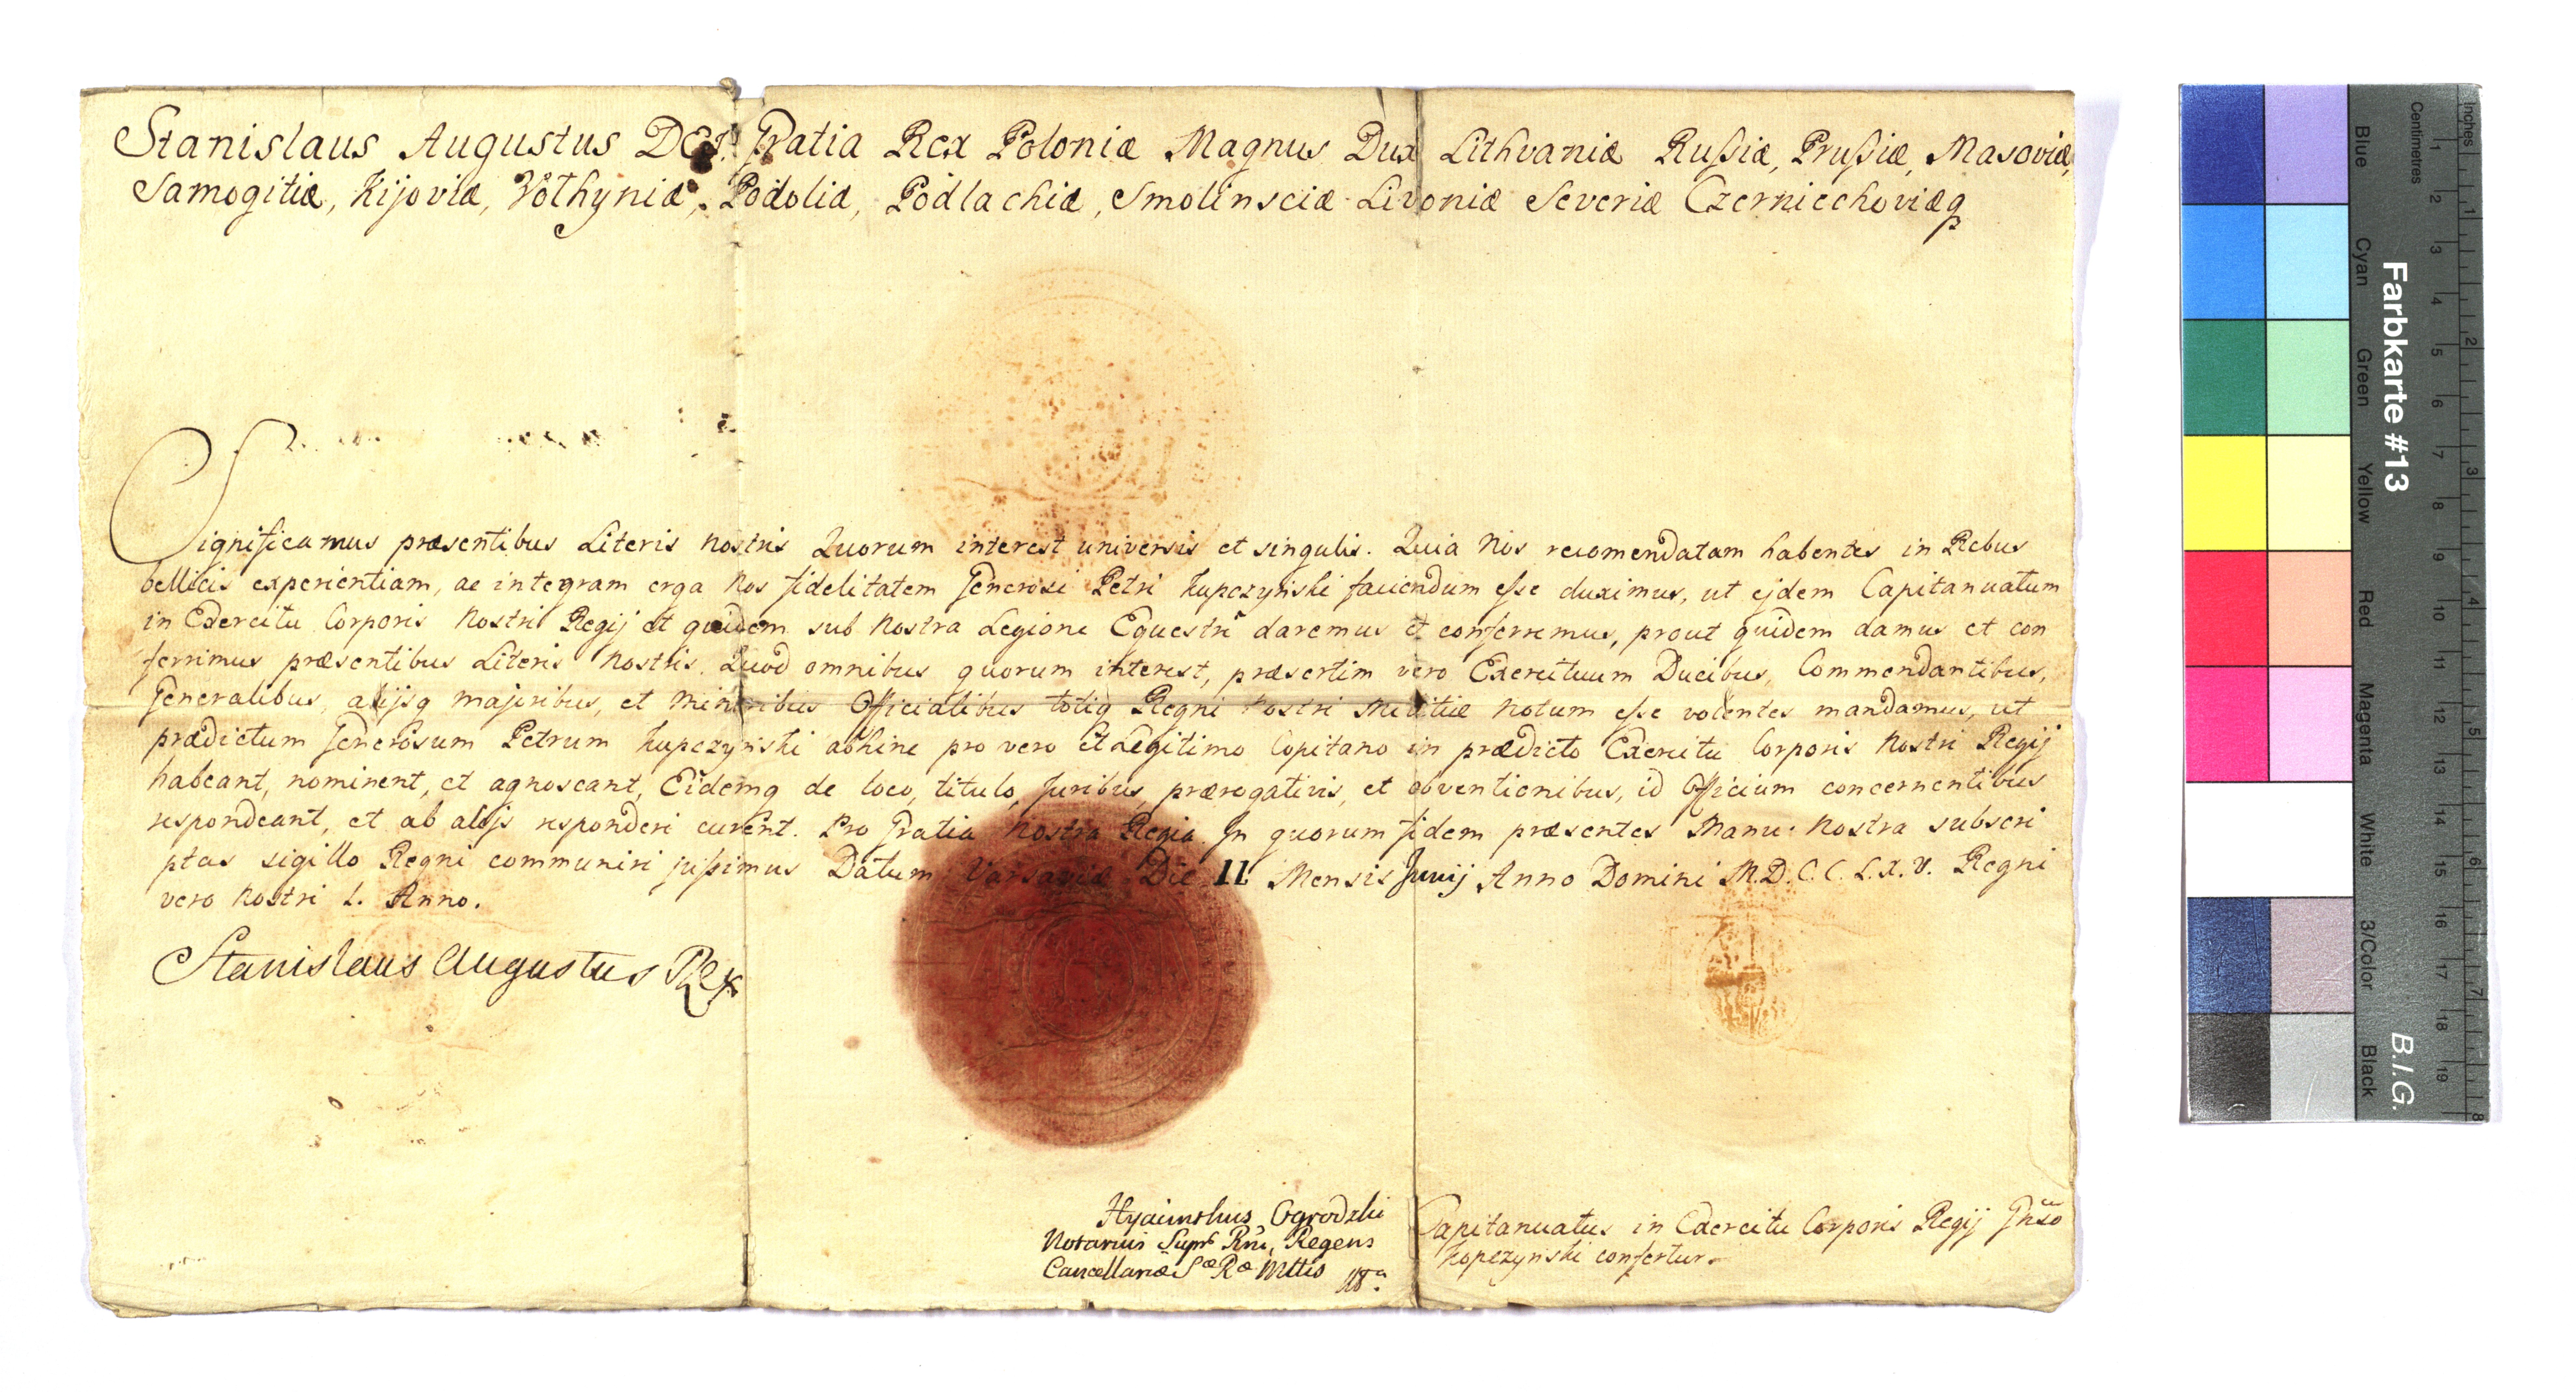 Stanislaus Augustus DEI Gratia Rex Poloniæ Magnus Dux Lithvaniæ Rußiæ, Prußiæ, Masoviæ,
Samogitiæ, Kijoviæ, Volhyniæ, Podoliæ, Podlachiæ, Smolinsciæ Livoniæ Severiæ Czerniechoviæq
Significamus præsentibus Literis nostris Quorum interest universis et singulis. Quia Nos recomendatam habentes in Rebus
bellicis experientiam, ac integram erga Nos fidelitatem Generosi Petri Kupczyński faciendum eße duximus, ut ejdem Capitanuatum
in Exercitu Corporis Nostri Regij et quidem sub Nostra Legione Equestri daremus et conferremus, prout quidem damus et con
ferrimus præsentibus Literis Nostris. Quod omnibus quorum interest, præsertim vero Exercituum Ducibus, Commendantibus,
Generalibus, alijsq majoribus, et Minoribus Officialibus totiq Regni Nostri Militiæ Notum eße volentes mandamus, ut
prædictum Generosum Petrum Kupczyński abhinc pro vero et Legitimo Capitano in prædicto Exercitu Corporis Nostri Regij
habeant, nominent, et agnoscant, Eidemq de loco, titulo, Juribus, prærogativis, et obventionibus, id Officium concernentibus
respondeant, et ab alijs responderi curent. Pro Gratia Nostra Regia. In quorum fidem præsentes Manu: Nostra subscri
ptas sigillo Regni communiri jußimus Datum Varsaviæ Die 11 Mensis Junij Anno Domini M.D.C.C.L.X.V. Regni
vero Nostri I. Anno.
Stanislaus Augustus Rex
Hyacinthus Ogrodzki
Notarius Supr Rni, Regens
Cancellariæ Sæ Ræ Mttis
Capitanuatus in Exercitu Corporis Regij Gnso
Kopczyński confertur.
Farbkarte #13
B.I.G.
Centimetres
Inches
Blue
Cyan
Green
Yellow
Red
Magenta
White
3/Color
Black
1 2 3 4 5 6 7 8 9 10 11 12 13 14 15 16 17 18 19
1 2 3 4 5 6 7 8